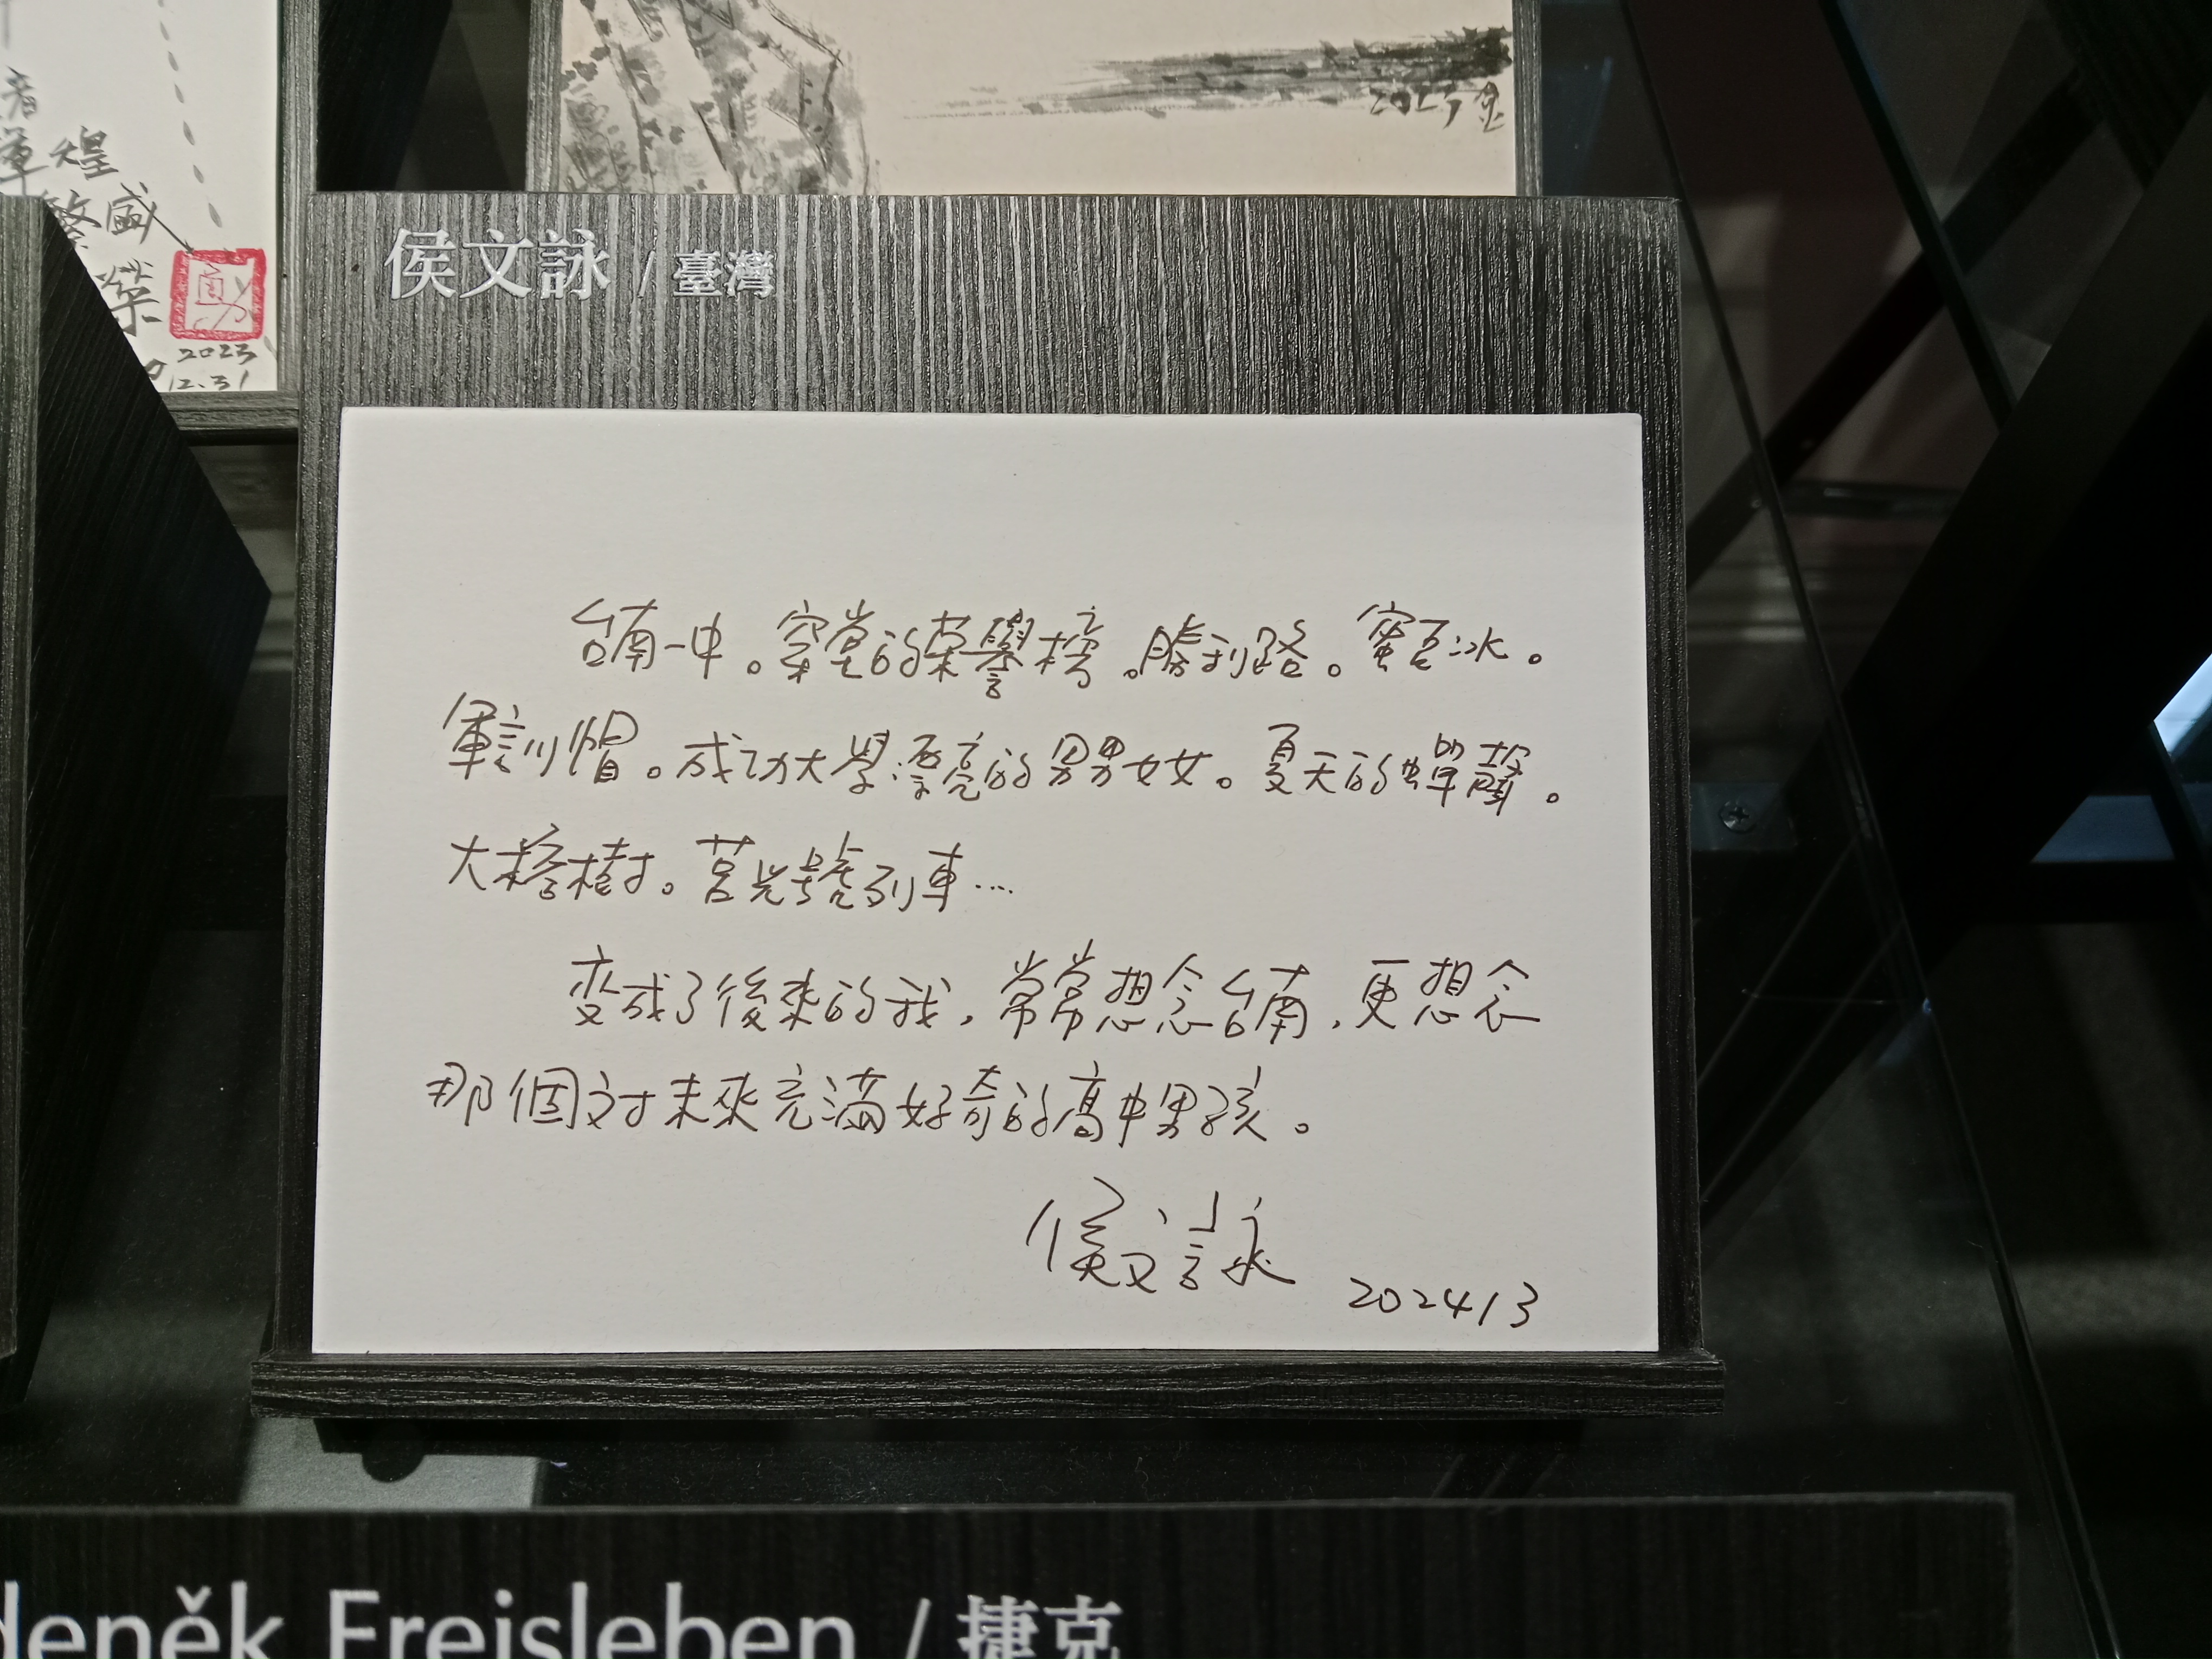 着
煌
繁盛
榮
勇
2023
12.31
2023
侯文詠 / 臺灣
台南一中。穿堂的荣譽榜。勝利路。蜜豆冰。
軍訓帽。成功大學漂亮的男男女女。夏天的蟬聲。
大榕樹。莒光號列車…
变成了後來的我,常常想念台南,更想念
那個对未來充滿好奇的高中男孩。
侯文詠
2024 1 3
deněk Freisleben / 捷克